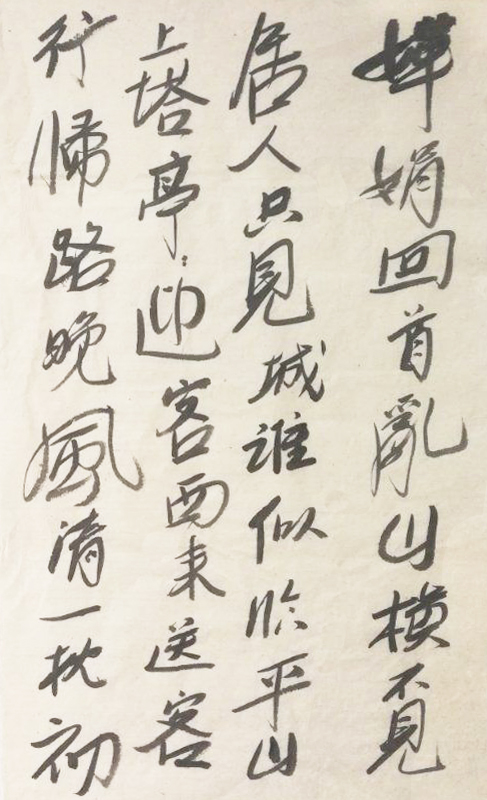 嬋娟回首亂山横不見
居人只見城誰似临平山
上塔亭〻迎客西来送客
行歸路晚風清一枕初